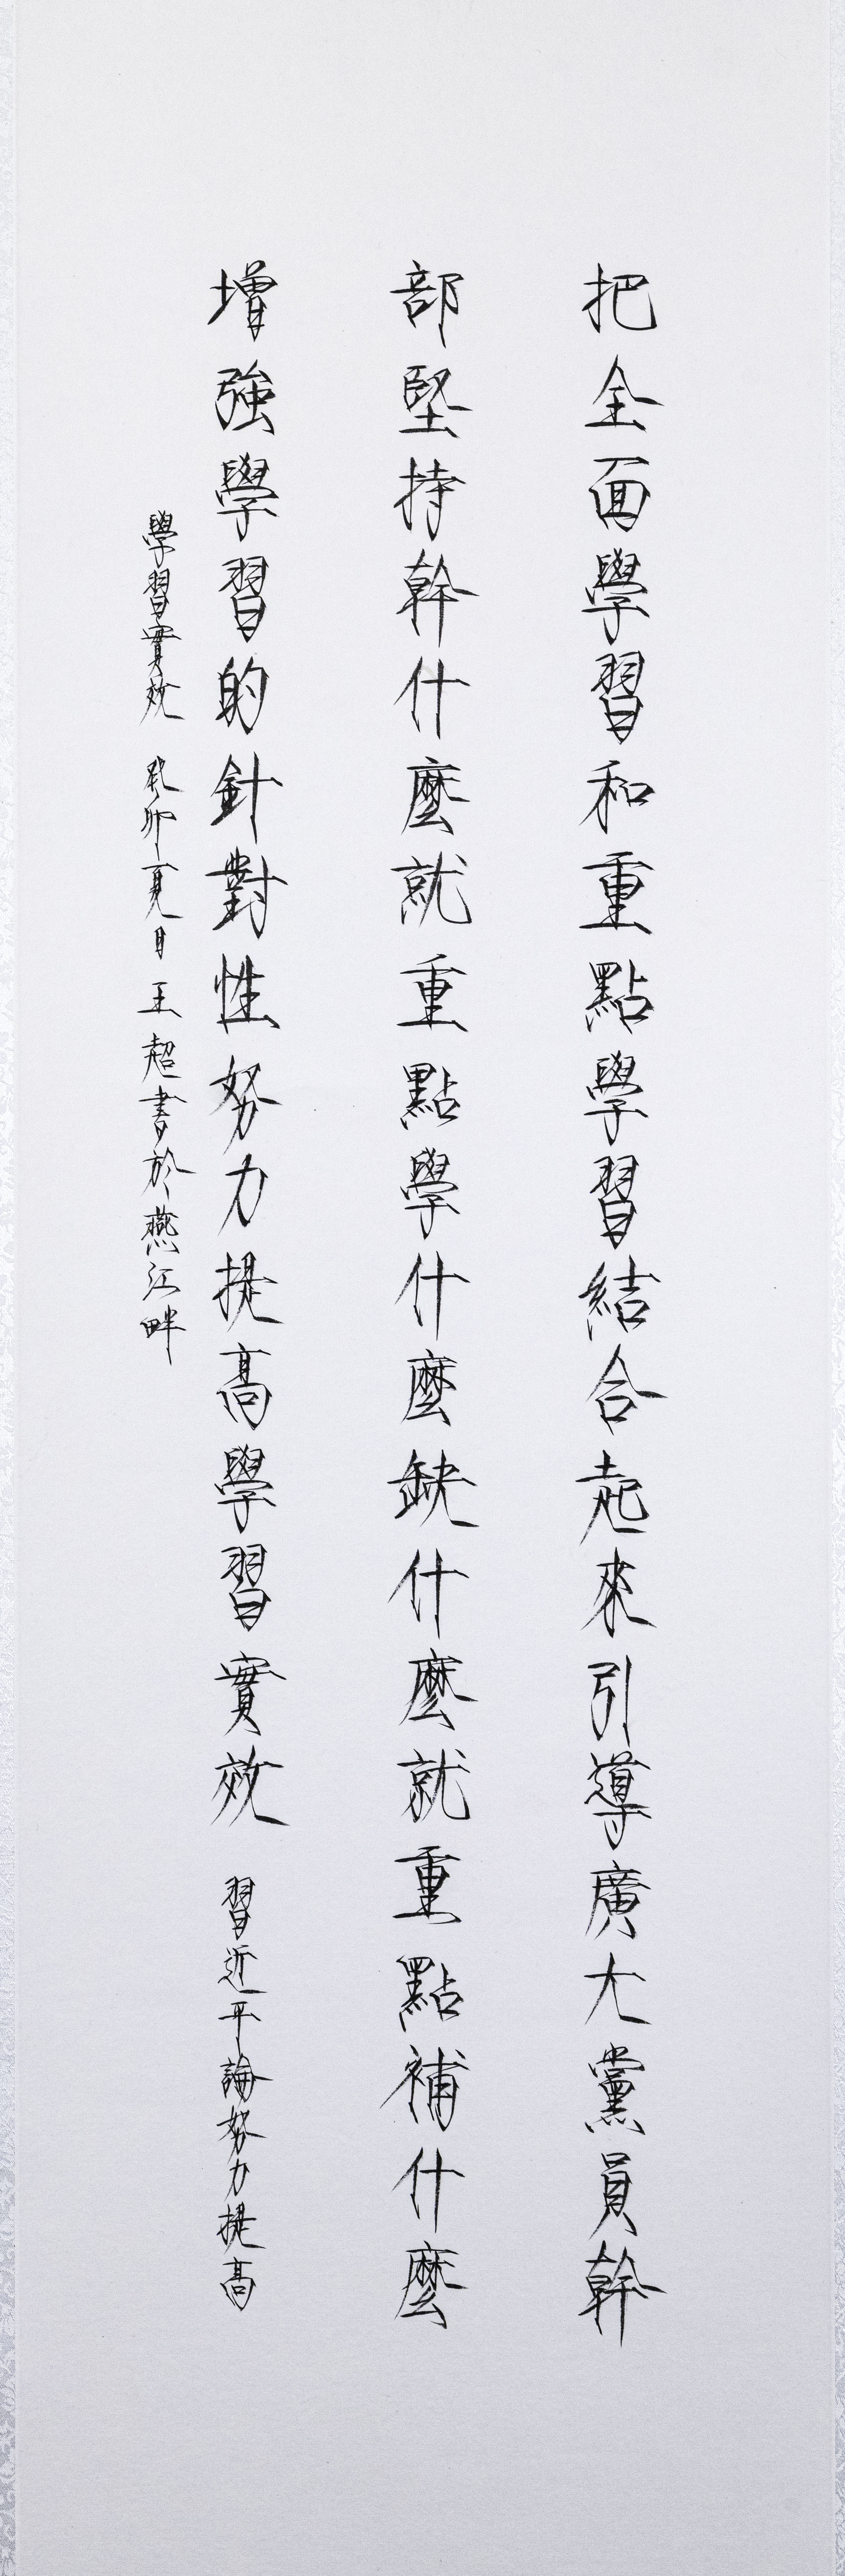 把全面學習和重點學習結合起來引導廣大黨員幹
部堅持幹什麼就重點學什麼缺什麼就重點補什麼
增強學習的針對性努力提高學習實效 習近平論努力提高
學習實效 癸卯夏日王超書於燕江畔